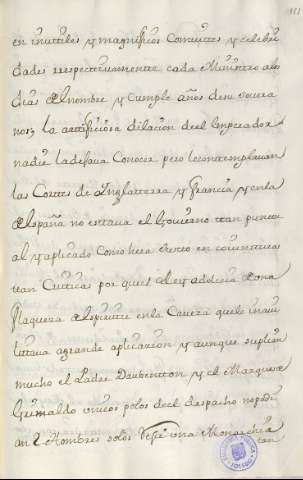 en inuttiles y magnificos Comuites y celebri
dades respectiuamente cada Ministro a los
dias del nombre y Cumple años de su souera
nos, la artificiosa dilacion del emperador
nadie la dejaua Conocer pero lo contemplauan
las Cortes de Ynglatterra y francia y en la
de españa no estaua el Gouierno tan puntu
al y aplicado Como hera cierto en couiunturas
tan Cutticas por que el Rey adolecia de una
flaqueza de espiritu en la Caueza que le inaui
littaua a grande aplicacion y aunque suplian
mucho el Padre Daubentton y el Marques de
Grimaldo unicos polos de el despacho no podi
an 2 Hombres solos Regir una Monarchia
tan